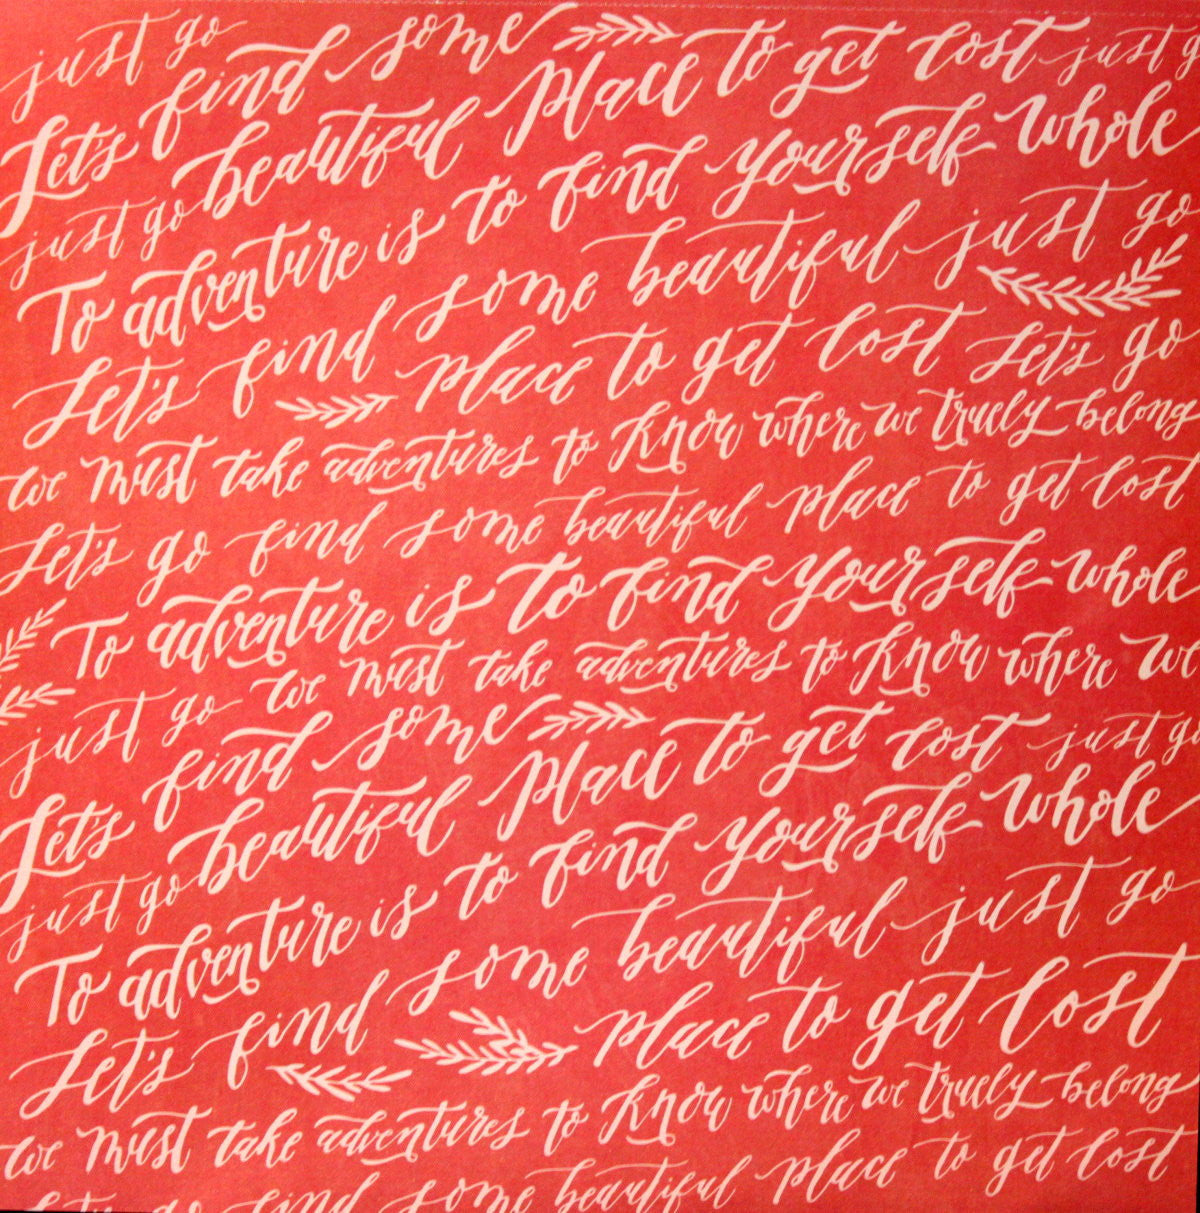 just go
find some place to get lost just g
Let's beautiful
just go
To adventure is to find yourself whole
Let's find some beautiful just go
place to get lost Let's go
we must take adventures to know where we truely belong
Let's go find some beautiful place to get lost
To adventure is to find yourself whole
just go we must take adventures to know where we
find some place to get lost just go
Let's beautiful
just go
To adventure is to find yourself whole
Let's find some beautiful just go
place to get lost
we must take adventures to know where we truely belong
Let's go find some beautiful place to get lost